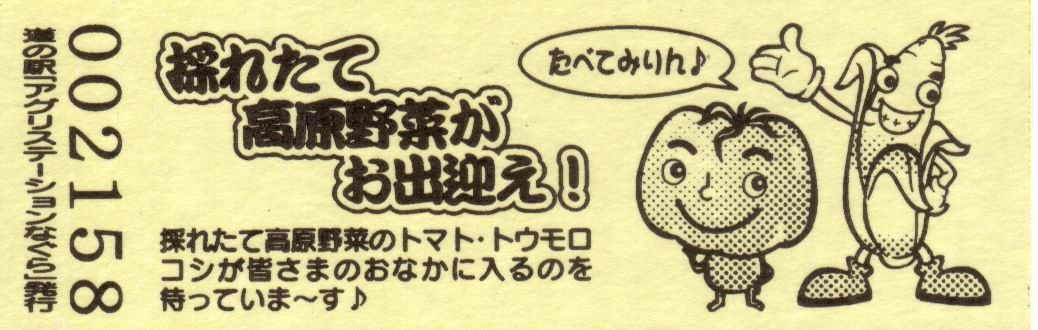 道の駅「アグリステーションなぐら」発行
002158
採れたて
高原野菜が
お出迎え!
たべてみりん♪
採れたて高原野菜のトマト・トウモロ
コシが皆さまのおなかに入るのを
待っていま〜す♪